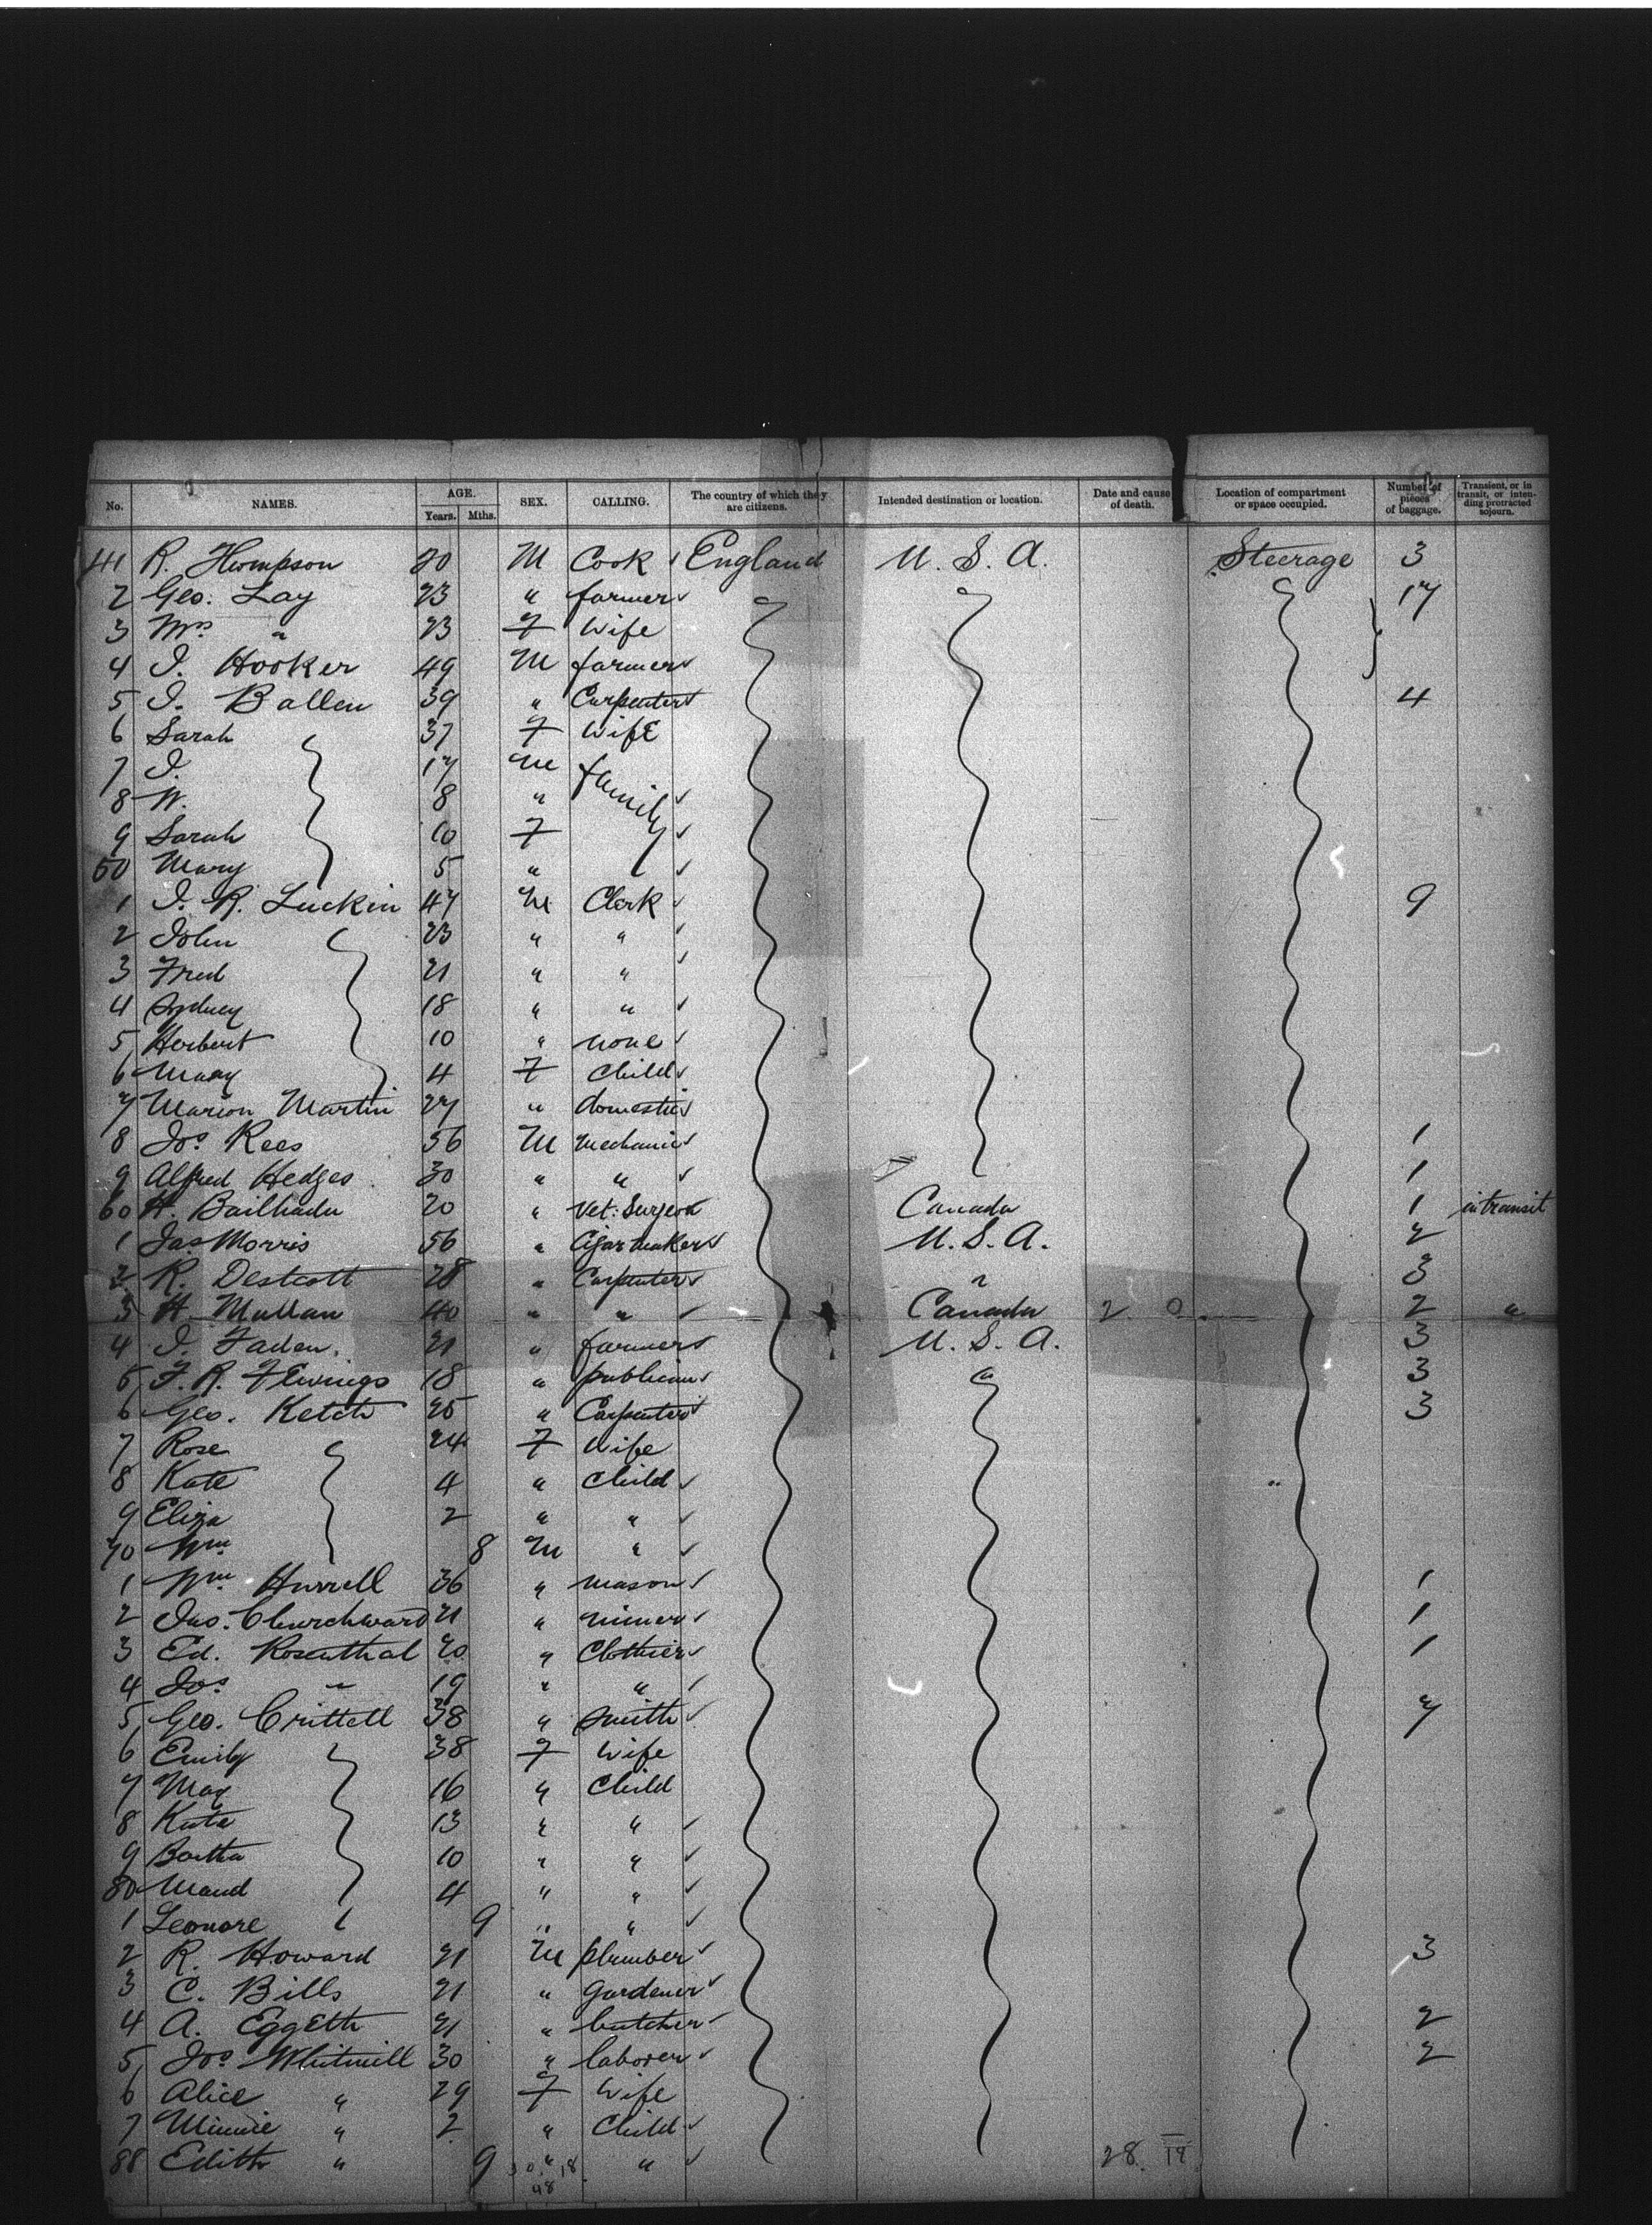 No. NAMES. AGE. Years. Mths. SEX. CALLING. The country of which they are citizens. Intended destination or location. Date and cause of death. Location of compartment or space occupied. Number of pieces of baggage. Transient, or in transit, or intending protracted sojourn.
41 R. Thompson 20 M Cook England U.S.A. Steerage 3
2 Geo. Lay 23 " farmer 17
3 Mrs " 23 F Wife
4 I. Hooker 49 M farmer
5 I. Ballen 39 " Carpenter 4
6 Sarah 37 F Wife
7 I. 17 M family
8 W. 8 "
9 Sarah 10 F
50 Mary 5 "
1 I. R. Luckin 47 M Clerk 9
2 John 23 " "
3 Fred 21 " "
4 Sydney 18 " "
5 Herbert 10 " none
6 Mary 4 F Child
7 Marion Martin 27 " domestic
8 Jos Rees 56 M Mechanic 1
9 Alfred Hedges 30 " " 1
60 H. 20 " Vet: Surgeon Canada 1 in transit
1 Jas Morris 56 " Cigar maker U.S.A. 2
2 R. Destcott 28 " Carpenter " 3
3 H. Mullan 40 " " Canada 2 0 2 "
4 I. Faden. 21 " farmer U.S.A. 3
5 F. R. 18 " publican " 3
6 Geo. Ketch 25 " Carpenter 3
7 Rose 24 F Wife
8 Kate 4 " Child
9 Eliza 2 " "
70 Wm 8 M "
1 Wm Hurrell 36 " mason 1
2 Jno. Churchward 21 " miner 1
3 Ed. Rosenthal 20 " Clothier 1
4 Jos " 19 " "
5 Geo. Crittell 38 " Smith 7
6 Emily 38 F Wife
7 May 16 " Child
8 Kate 13 " "
9 Bertha 10 " "
80 Maud 4 " "
1 Leonore 9 " "
2 R. Howard 21 M plumber 3
3 C. Bills 21 " gardener
4 A. Eggeth 21 " butcher 2
5 Jos Whitmill 30 " laborer 2
6 Alice " 29 F Wife
7 Minnie " 2 " Child
88 Edith " 9 " " 28. 14
30. 18.
48